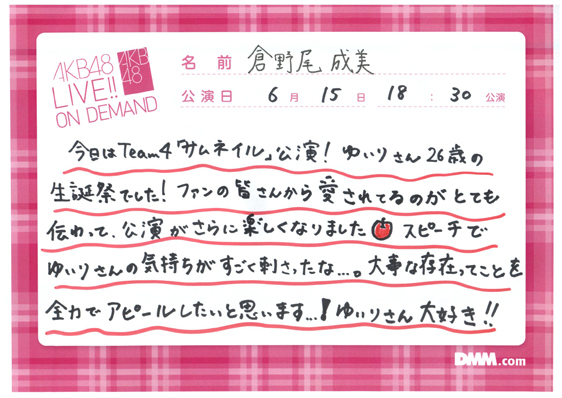 AKB48
LIVE!!
ON DEMAND
AKB
48
名前 倉野尾 成美
公演日 6月 15日 18:30 公演
今日はTeam4「サムネイル」公演! ゆいりさん26歳の
生誕祭でした! ファンの皆さんから愛されてるのがとても
伝わって、公演がさらに楽しくなりました スピーチで
ゆいりさんの気持ちがすごく刺さったな...。大事な存在ってことを
全力でアピールしたいと思います...! ゆいりさん大好き!!
DMM.com